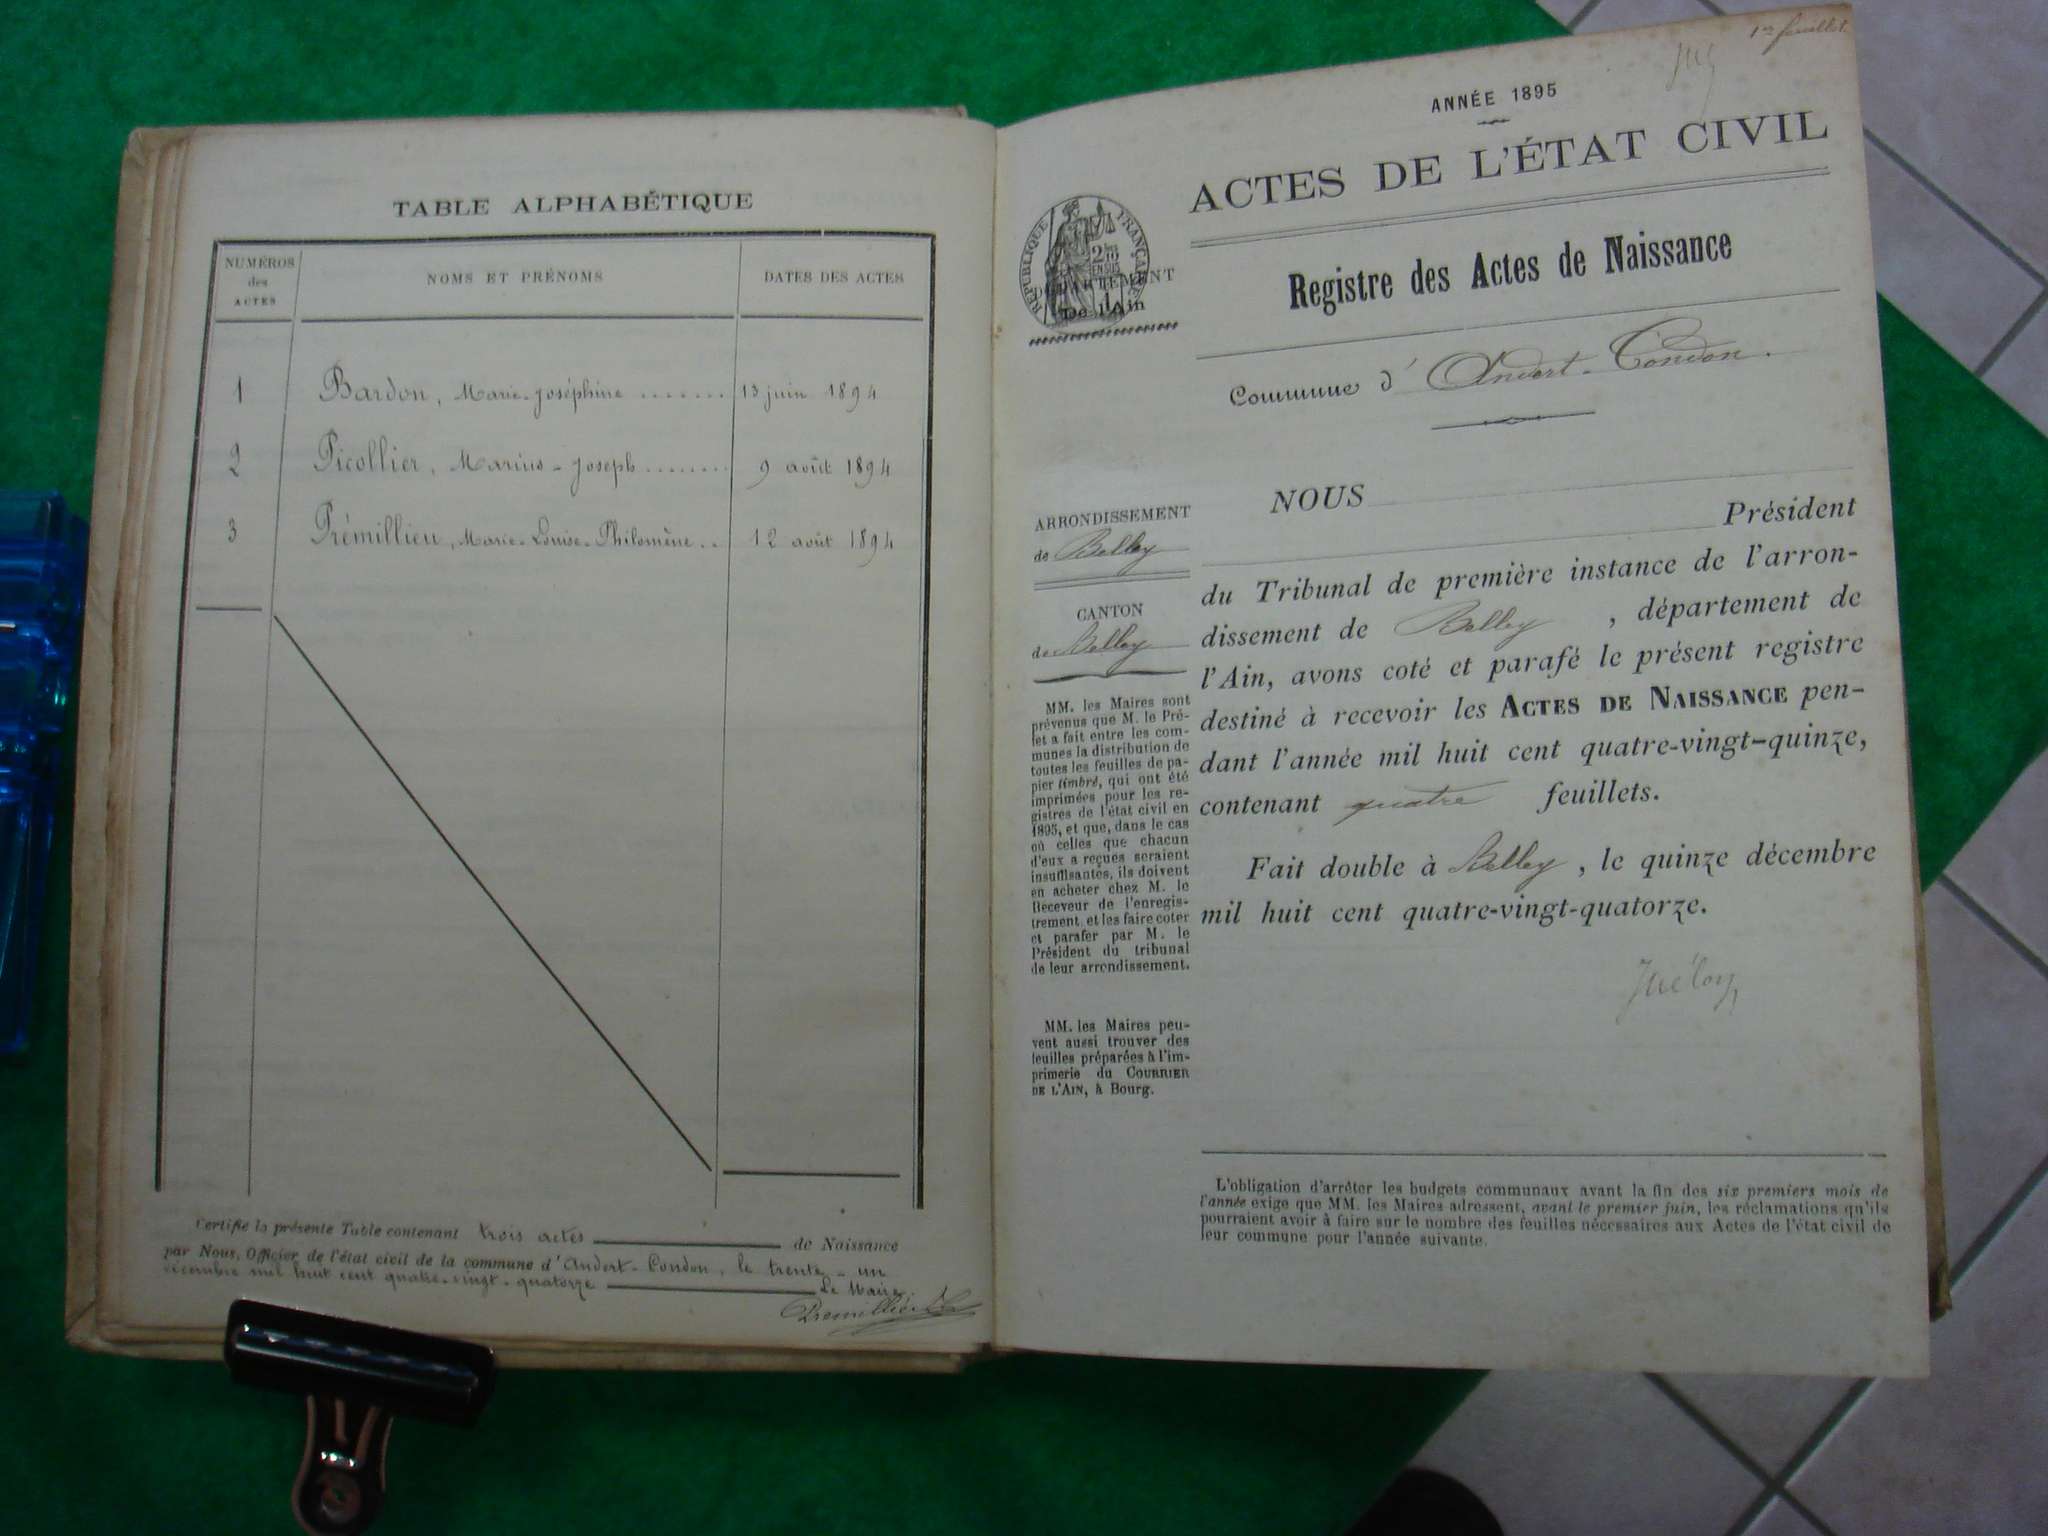 TABLE ALPHABÉTIQUE
NUMÉROS des ACTES
NOMS ET PRÉNOMS
DATES DES ACTES
1 Bardon, Marie-Joséphine ....... 13 juin 1894
2 Picollier, Marius-Joseph ........ 9 août 1894
3 Prémillieu, Marie-Louise-Philomène .. 12 août 1894
Certifié la présente Table contenant trois actes de Naissance
par Nous, Officier de l'état civil de la commune d'Andert-Condon, le trente-un
décembre mil huit cent quatre-vingt-quatorze
Le Maire,
1er feuillet
ANNÉE 1895
ACTES DE L'ÉTAT CIVIL
RÉPUBLIQUE FRANÇAISE
2/10 EN SUS
DÉPARTEMENT
De l'Ain
Registre des Actes de Naissance
Commune d'Andert-Condon.
ARRONDISSEMENT
de Belley
CANTON
de Belley
MM. les Maires sont
prévenus que M. le Pré-
fet a fait entre les com-
munes la distribution de
toutes les feuilles de pa-
pier timbré, qui ont été
imprimées pour les re-
gistres de l'état civil en
1895, et que, dans le cas
où celles que chacun
d'eux a reçues seraient
insuffisantes, ils doivent
en acheter chez M. le
Receveur de l'enregis-
trement et les faire coter
et parafer par M. le
Président du tribunal
de leur arrondissement.
MM. les Maires peu-
vent aussi trouver des
feuilles préparées à l'im-
primerie du COURRIER
DE L'AIN, à Bourg.
NOUS
Président
du Tribunal de première instance de l'arron-
dissement de Belley, département de
l'Ain, avons coté et parafé le présent registre
destiné à recevoir les ACTES DE NAISSANCE pen-
dant l'année mil huit cent quatre-vingt-quinze,
contenant quatre feuillets.
Fait double à Belley, le quinze décembre
mil huit cent quatre-vingt-quatorze.
L'obligation d'arrêter les budgets communaux avant la fin des six premiers mois de
l'année exige que MM. les Maires adressent, avant le premier juin, les réclamations qu'ils
pourraient avoir à faire sur le nombre des feuilles nécessaires aux Actes de l'état civil de
leur commune pour l'année suivante.